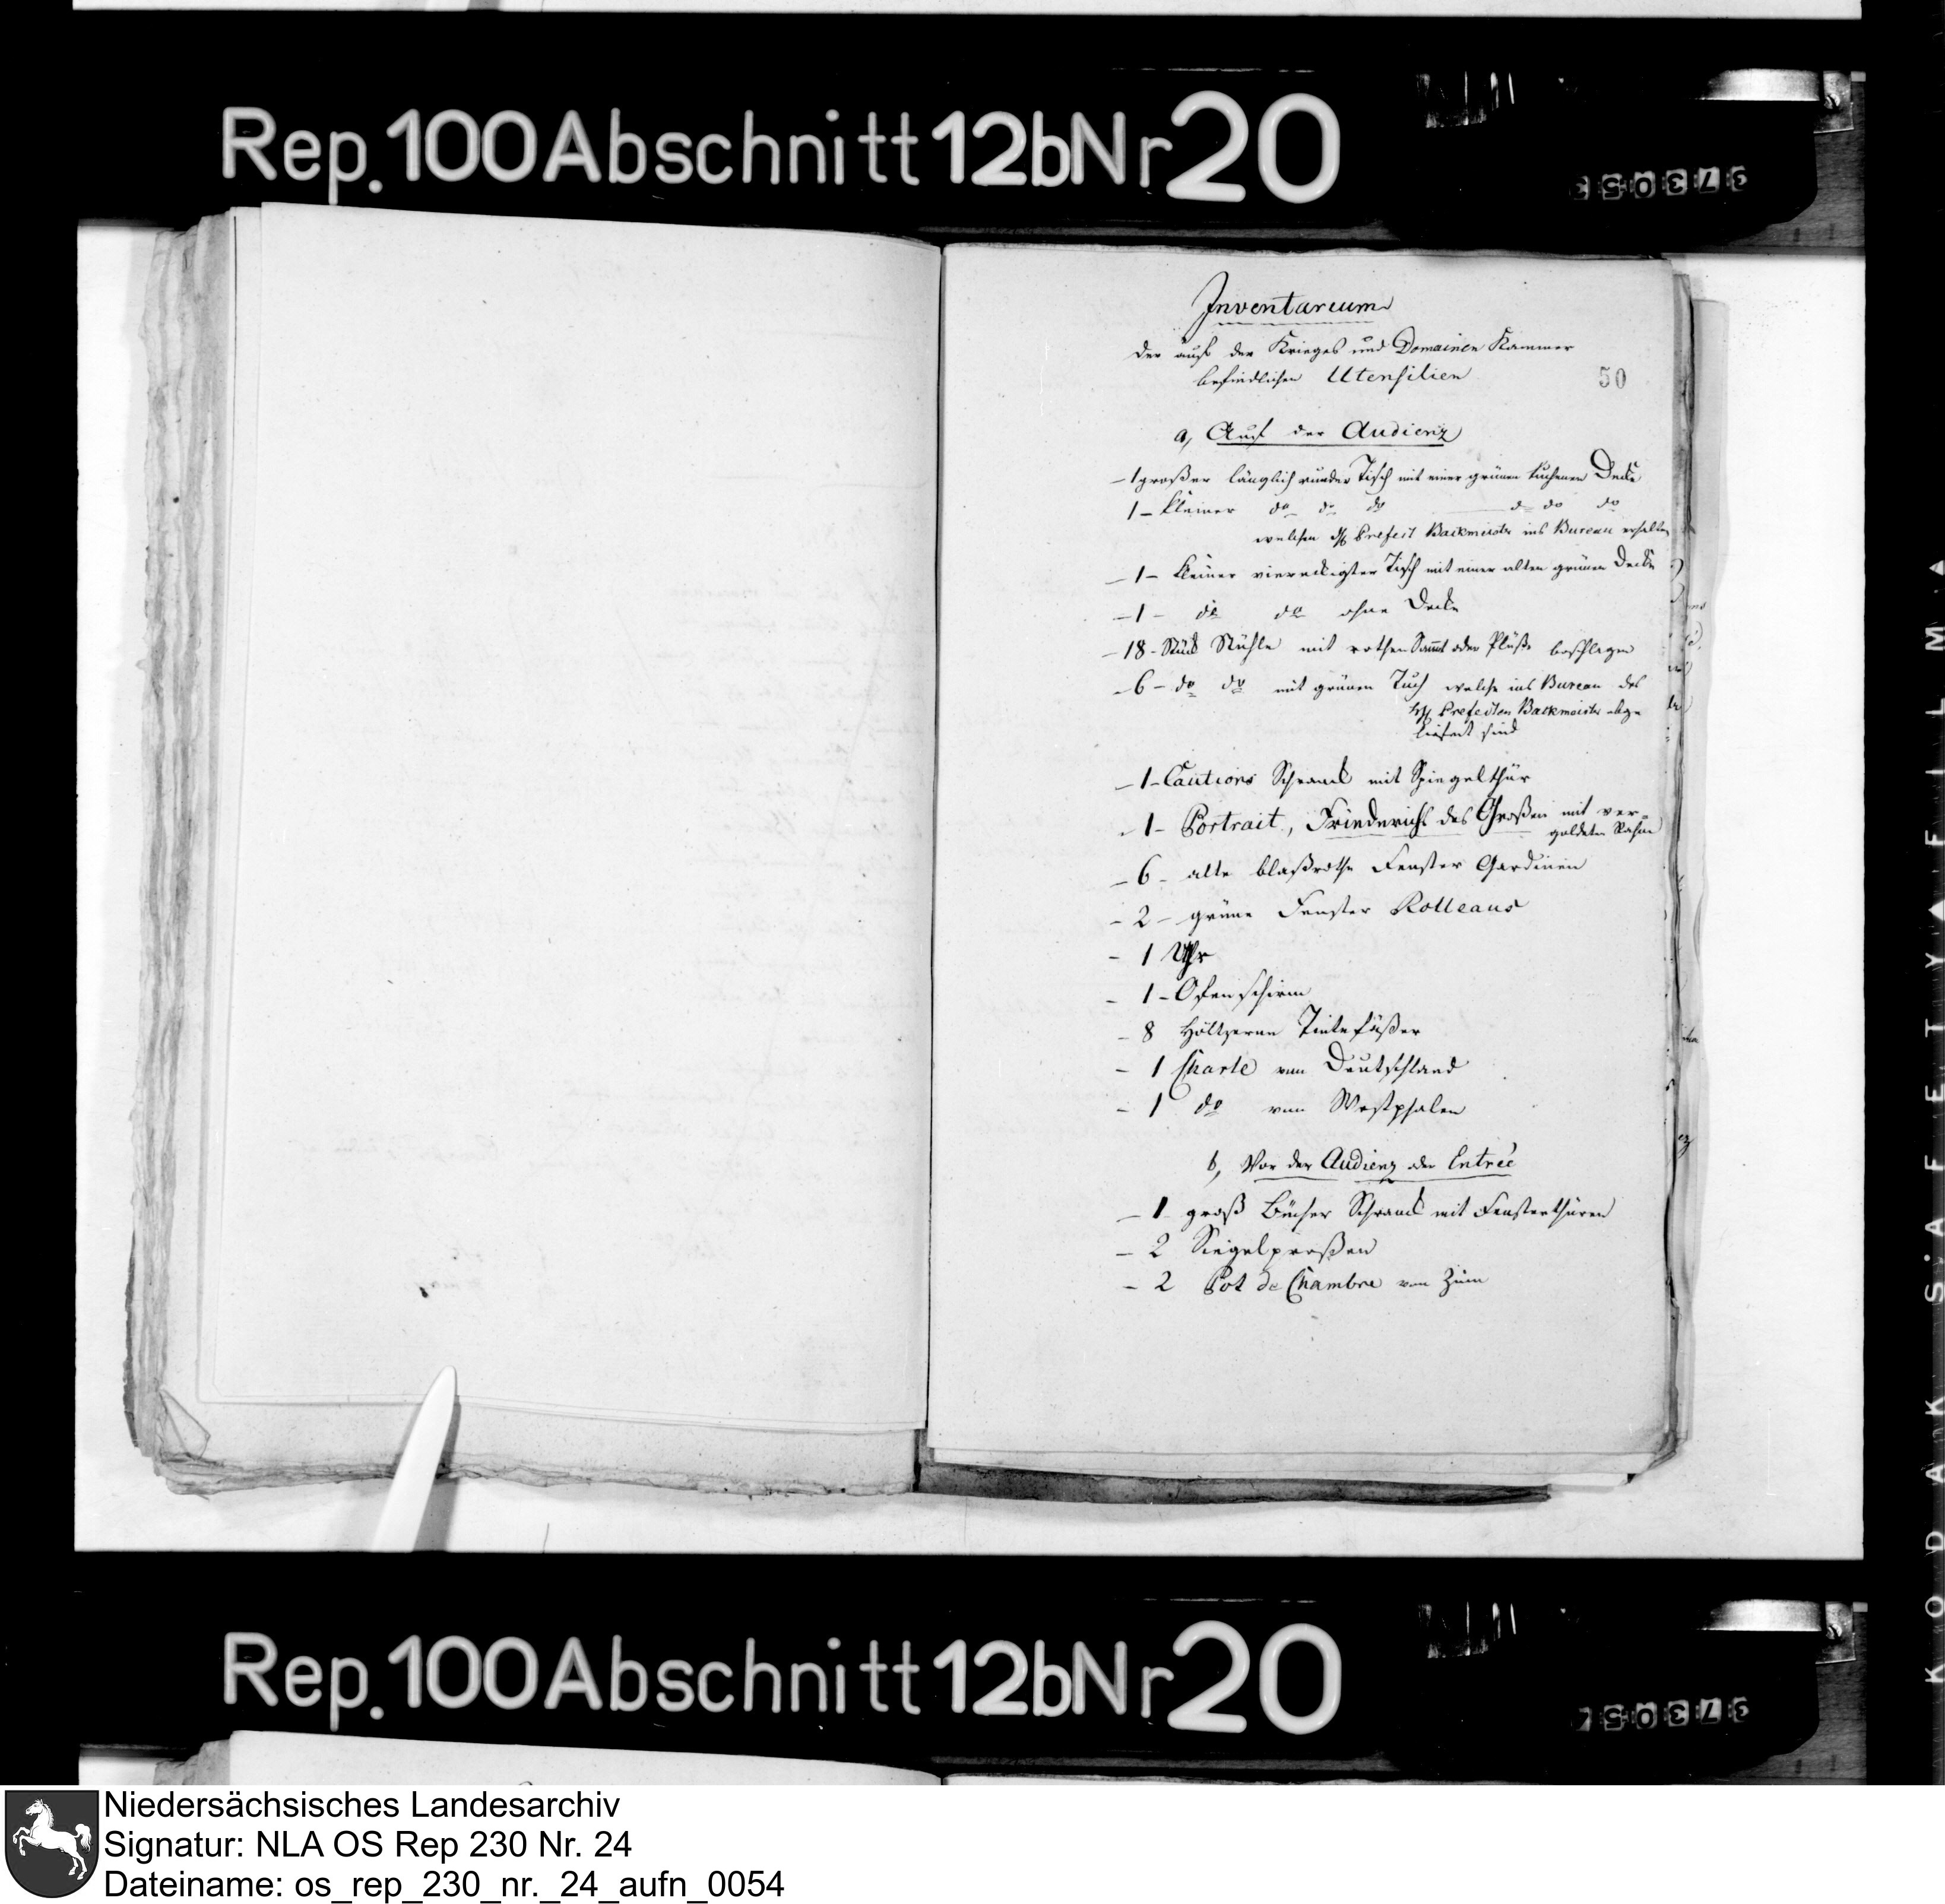 Rep. 100 Abschnitt 12b Nr 20
Inventarium
der auf der Krieges und Domainen Kammer
befindlichen Utensilien
50
a, Auf der Audienz
– 1 großer länglich runder Tisch mit einer grünen tuchenen Decke
1 – kleiner do do do do do do
welchen Prefect Backmeister ins Bureau erhalten
– 1 – kleiner viereckigter Tisch mit einer alten grünen Decke
– 1 – do do ohne Decke
– 18 – Stück Stühle mit rothen Sammt oder Plüße beschlagen
– 6 – do do mit grünen Tuch welche ins Bureau des
Prefecten Backmeister abge-
liefert sind
– 1 – Cautions Schranck mit Spiegelthür
– 1 – Portrait, Friederichs des Großen mit ver-
goldeten Rahm
– 6 – alte blaßrothe Fenster Gardinen
– 2 – grüne Fenster Rolleaus
– 1 Uhr
– 1 – Ofenschirm
– 8 höltzerne Tintefäßer
– 1 Charte von Deutschland
– 1 do von Westphalen
b, Vor der Audienz oder Entrée
– 1 groß Bücher Schranck mit Fensterthüren
– 2 Siegelpreßen
– 2 Pot de Chambre von Zinn
KODAK SAFETY FILM
Rep. 100 Abschnitt 12b Nr 20
Niedersächsisches Landesarchiv
Signatur: NLA OS Rep 230 Nr. 24
Dateiname: os_rep_230_nr._24_aufn_0054